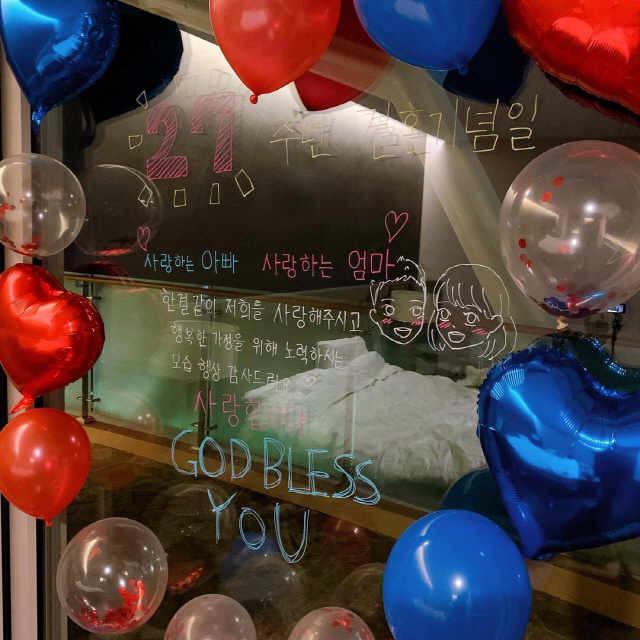 27 주년 결혼기념일
사랑하는 아빠 사랑하는 엄마
한결같이 저희를 사랑해주시고
행복한 가정을 위해 노력하시는
모습 항상 감사드려요
사랑합니다
GOD BLESS
YOU